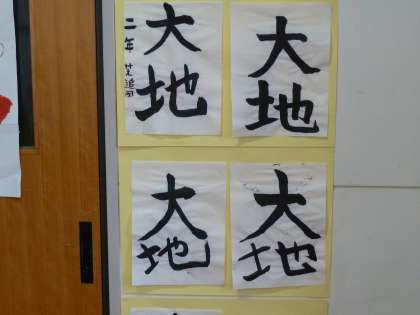 大地
二年
大地
大地
大地